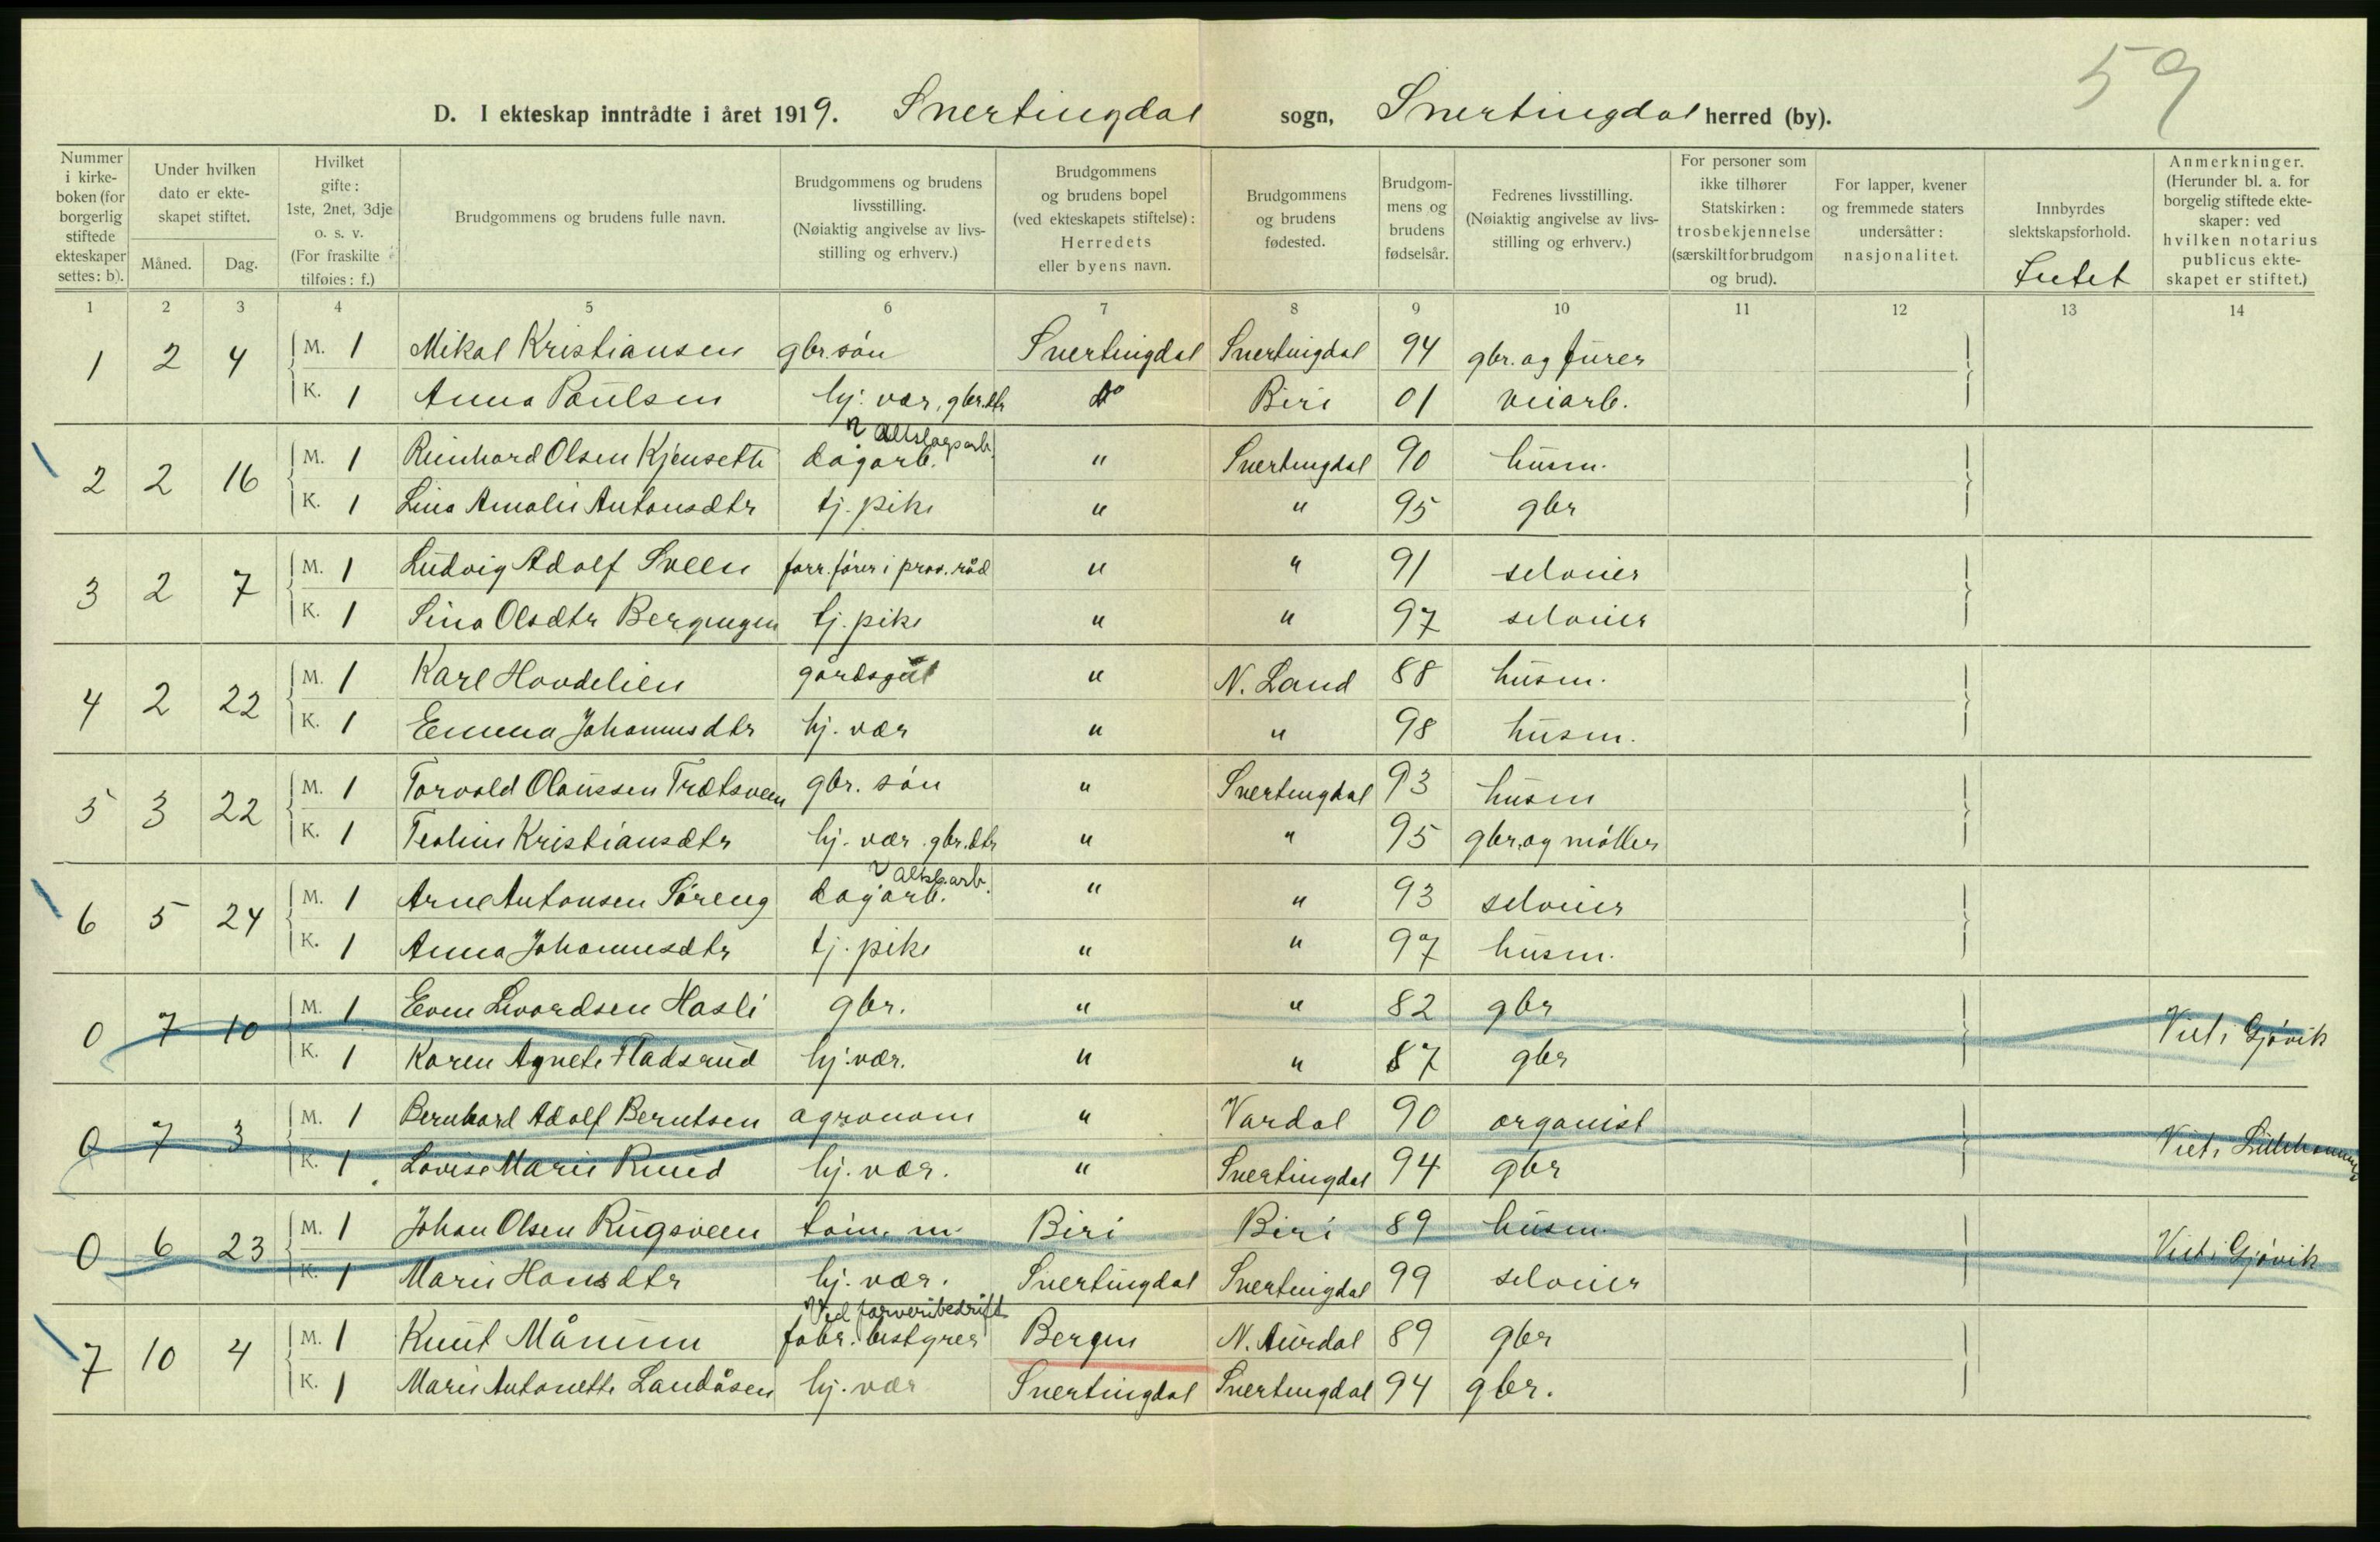 59
D. I ekteskap inntrådte i året 1919. Snertingdal sogn, Snertingdal herred (by).
Nummer i kirkeboken (for borgerlig stiftede ekteskaper settes: b).
Under hvilken dato er ekteskapet stiftet.
Måned. Dag.
Hvilket gifte: 1ste, 2net, 3dje o. s. v. (For fraskilte tilføies: f.)
Brudgommens og brudens fulle navn.
Brudgommens og brudens livsstilling. (Nøiaktig angivelse av livsstilling og erhverv.)
Brudgommens og brudens bopel (ved ekteskapets stiftelse): Herredets eller byens navn.
Brudgommens og brudens fødested.
Brudgommens og brudens fødselsår.
Fedrenes livsstilling. (Nøiaktig angivelse av livsstilling og erhverv.)
For personer som ikke tilhører Statskirken: trosbekjennelse (særskilt for brudgom og brud).
For lapper, kvener og fremmede staters undersåtter: nasjonalitet.
Innbyrdes slektskapsforhold.
Intet
Anmerkninger. (Herunder bl. a. for borgelig stiftede ekteskaper: ved hvilken notarius publicus ekteskapet er stiftet.)
1 2 3 4 5 6 7 8 9 10 11 12 13 14
1 2 4 M. 1 Mikal Kristiansen gbr. søn Snertingdal Snertingdal 94 gbr. og furer
K. 1 Anna Paulsen hj. vær, gbr. dtr do Biri 01 veiarb.
altslagsarb.
2 2 16 M. 1 Reinhard Olsen Kjensetti dagarb. " Snertingdal 90 husm.
K. 1 Lina Amalie Antonsdtr tj. pike " " 95 gbr
3 2 7 M. 1 Ludvig Adolf Sveen forr. fører i prov. råd " " 91 selveier
K. 1 Sina Olsdtr Bergengen tj. pike " " 97 selveier
4 2 22 M. 1 Karl Hovdelien gårdsgut " N. Land 88 husm.
K. 1 Emma Johannesdtr hj. vær " " 98 husm.
5 3 22 M. 1 Torvald Olaussen Trætsveen gbr. søn " Snertingdal 93 husm
K. 1 Teoline Kristiansdtr hj. vær. gbr. dtr " " 95 gbr. og møller
altsl. arb.
6 5 24 M. 1 Arne Antonsen Søreng dagarb. " " 93 selveier
K. 1 Anna Johannesdtr tj. pike " " 97 husm.
0 7 10 M. 1 Even Levordsen Hasli gbr. " " 82 gbr Viet i Gjøvik
K. 1 Karen Agnete Fladsrud hj. vær. " " 87 gbr
0 7 3 M. 1 Bernhard Adolf Berntsen agronom " Vardal 90 organist Viet i Lillehammer
K. 1 Lovise Marie Ruud hj. vær. " Snertingdal 94 gbr
0 6 23 M. 1 Johan Olsen Rugsveen tøm. m. Biri Biri 89 husm. Viet i Gjøvik
K. 1 Marie Hansdtr hj. vær. Snertingdal Snertingdal 99 selveier
Ved farveribedrift
7 10 4 M. 1 Knut Månum fabr. bestyrer Bergen N. Aurdal 89 gbr
K. 1 Marie Antonette Landåsen hj. vær Snertingdal Snertingdal 94 gbr.